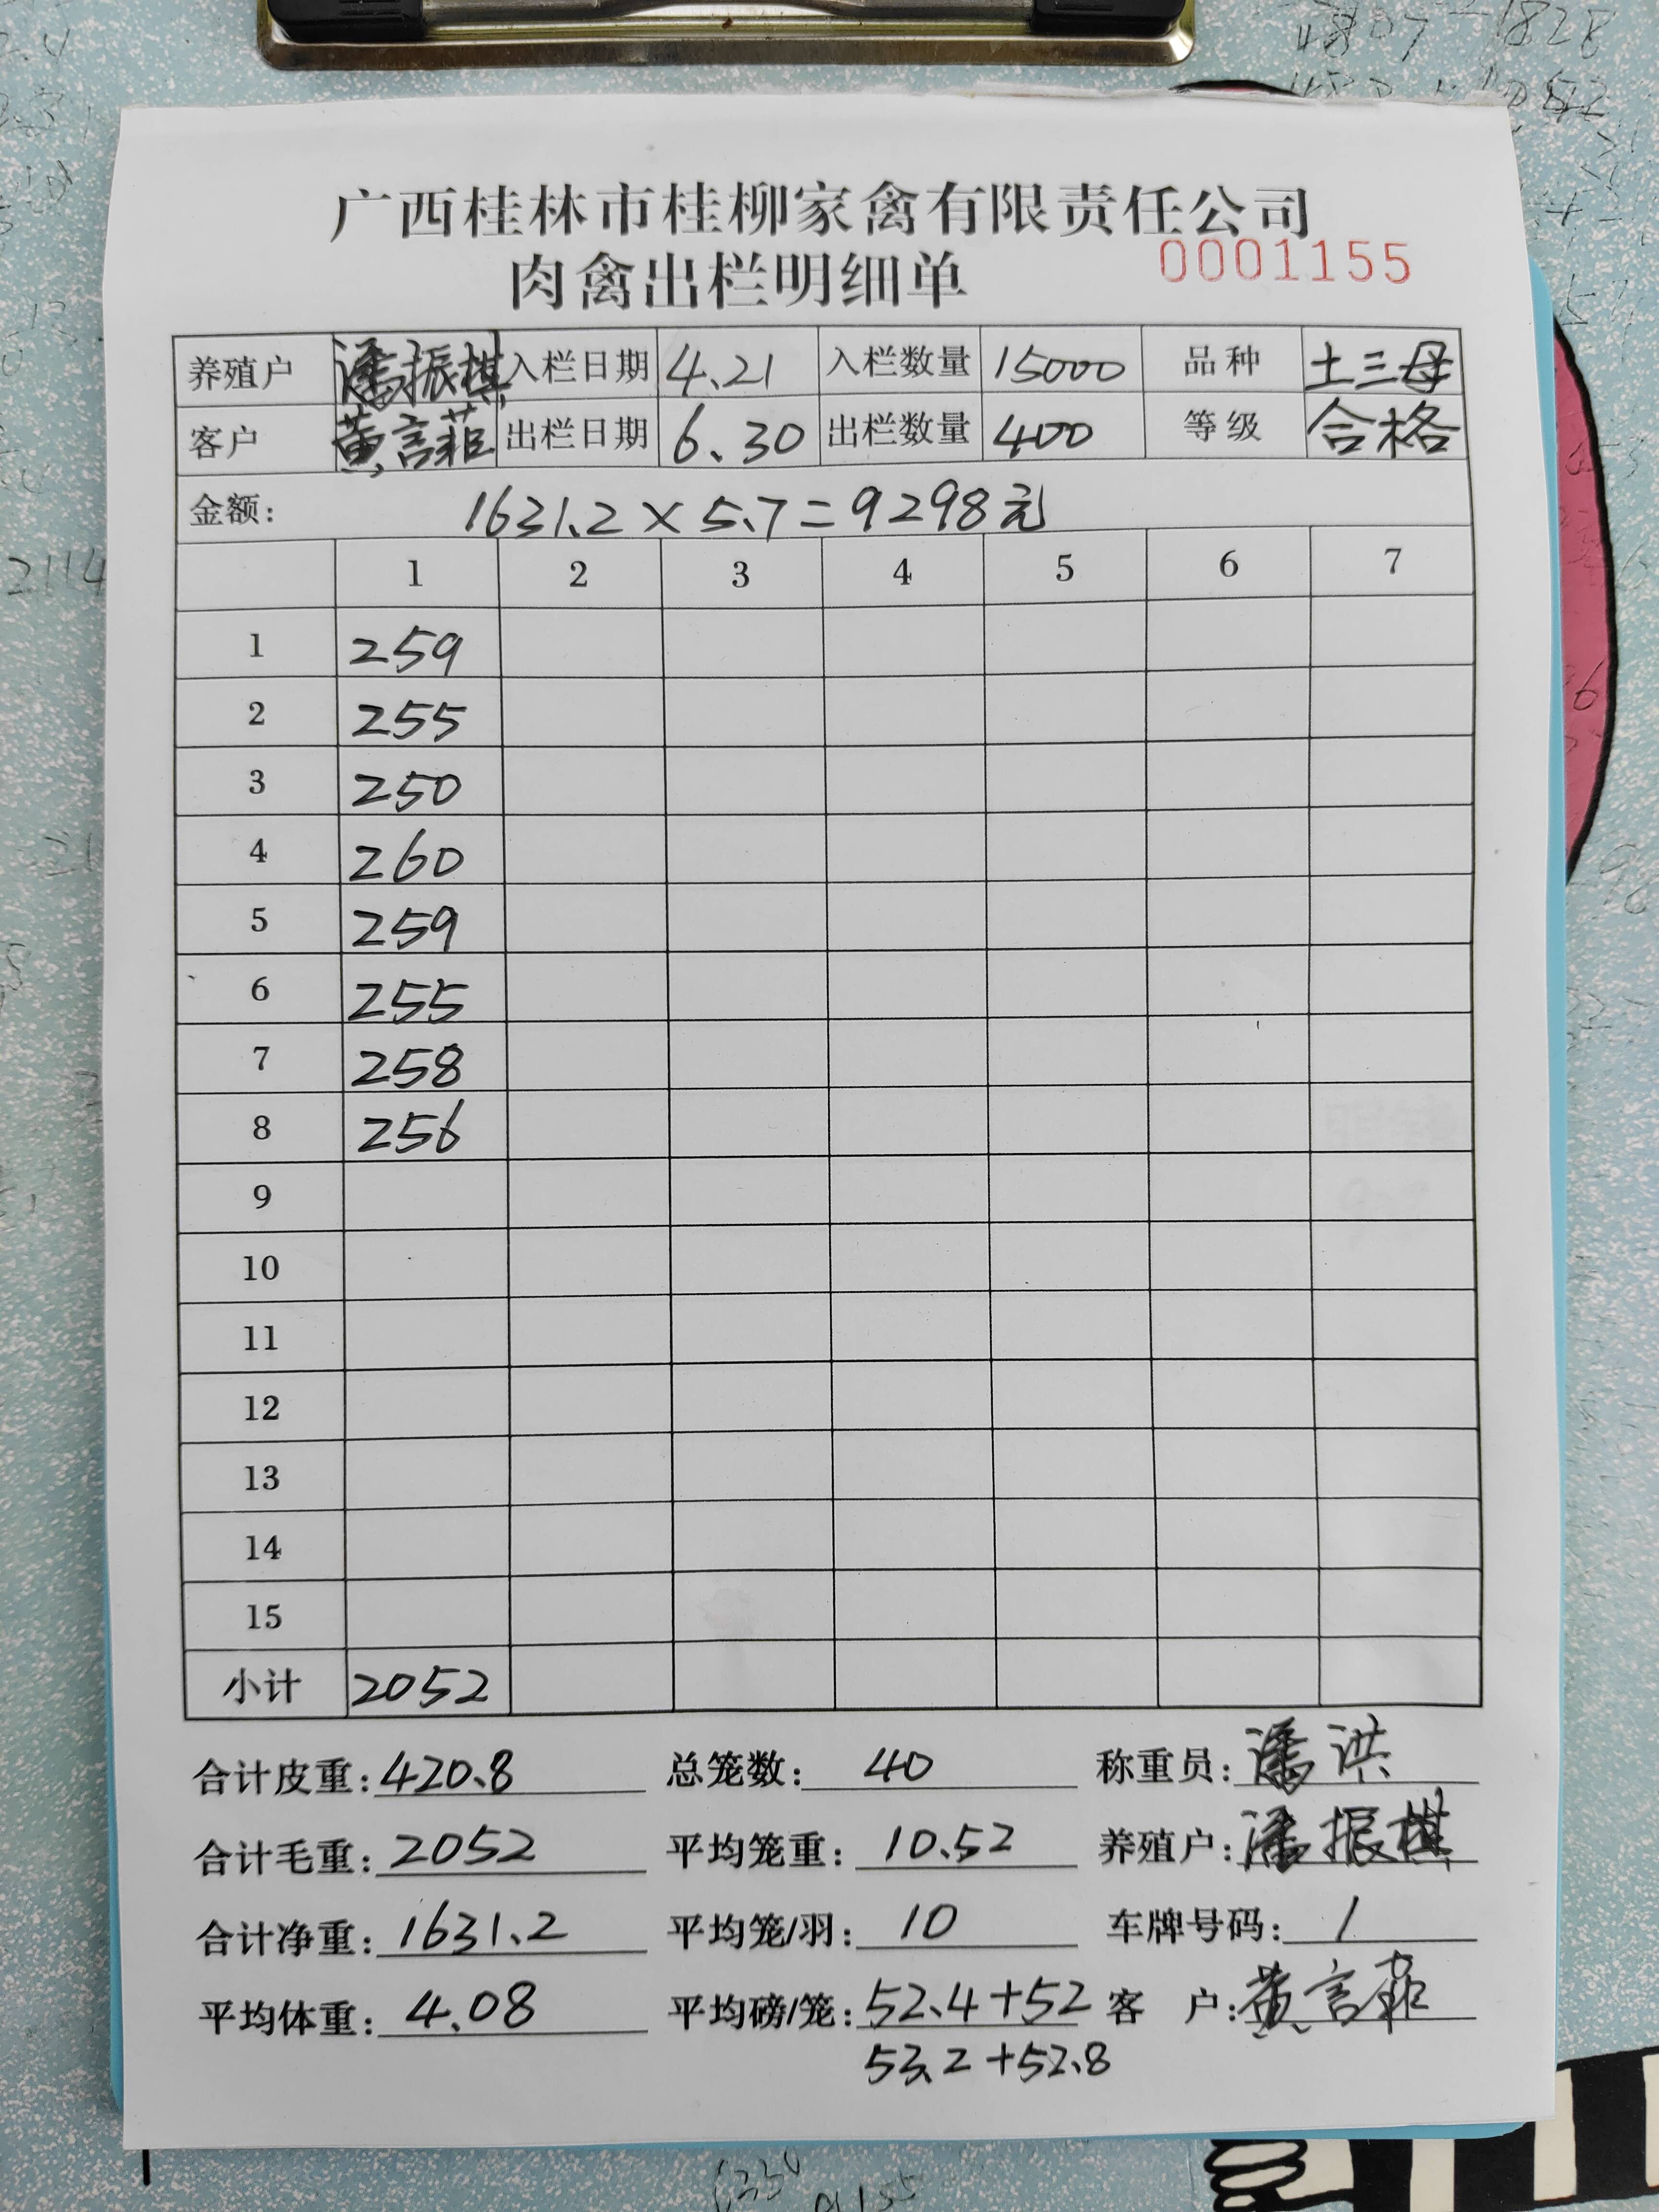 广西桂林市桂柳家禽有限责任公司
肉禽出栏明细单 0001155
养殖户 潘振棋 入栏日期 4.21 入栏数量 15000 品种 土三母
客户 黄言菲 出栏日期 6.30 出栏数量 400 等级 合格
金额: 1631.2×5.7=9298元
1 2 3 4 5 6 7
1 259
2 255
3 250
4 260
5 259
6 255
7 258
8 256
9
10
11
12
13
14
15
小计 2052
合计皮重: 420.8 总笼数: 40 称重员: 潘洪
合计毛重: 2052 平均笼重: 10.52 养殖户: 潘振棋
合计净重: 1631.2 平均笼/羽: 10 车牌号码: 1
平均体重: 4.08 平均磅/笼: 52.4+52 客 户: 黄言菲
53.2+52.8